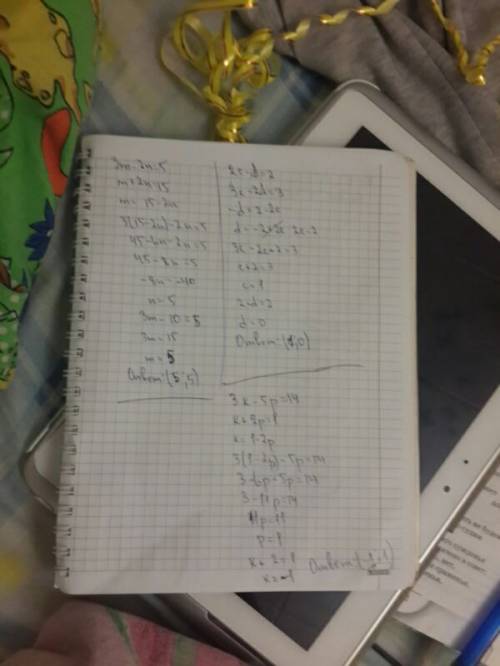 3m - 2n = 5
m + 2n = 15
m = 15 - 2n
3(15 - 2n) - 2n = 5
45 - 6n - 2n = 5
45 - 8n = 5
-8n = -40
n = 5
3m - 10 = 5
3m = 15
m = 5
Ответ: (5; 5)
2c - d = 2
3c - 2d = 3
-d = 2 - 2c
c = 1
2 - d = 2
d = 0
Ответ: (1; 0)
3k - 5p = 14
k + 2p = 1
k = 1 - 2p
3(1 - 2p) - 5p = 14
3 - 6p - 5p = 14
3 - 11p = 14
11p = 11
p = 1
k + 2 = 1
k = -1
Ответ: